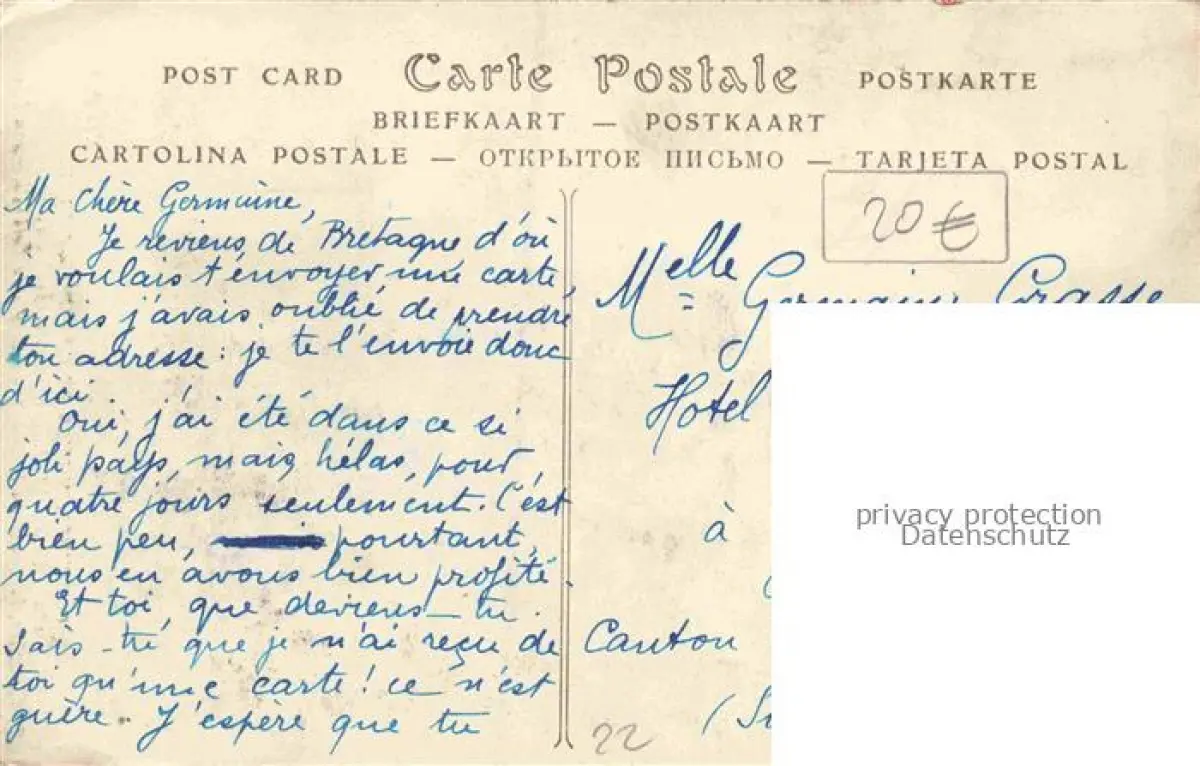 POST CARD Carte Postale POSTKARTE
BRIEFKAART — POSTKAART
CARTOLINA POSTALE — ОТКРЫТОЕ ПИСЬМО — TARJETA POSTAL
20 €
Ma chère Germaine,
Je reviens de Bretagne d'où
je voulais t'envoyer une carte,
mais j'avais oublié de prendre
ton adresse : je te l'envoie donc
d'ici.
Oui, j'ai été dans ce si
joli pays, mais, hélas, pour
quatre jours seulement. C'est
bien peu, pourtant,
nous en avons bien profité.
Et toi, que deviens-tu.
Sais-tu que je n'ai reçu de
toi qu'une carte ! ce n'est
guère. J'espère que tu
Melle Germaine Grasse
Hotel
à
Canton
22
privacy protection
Datenschutz